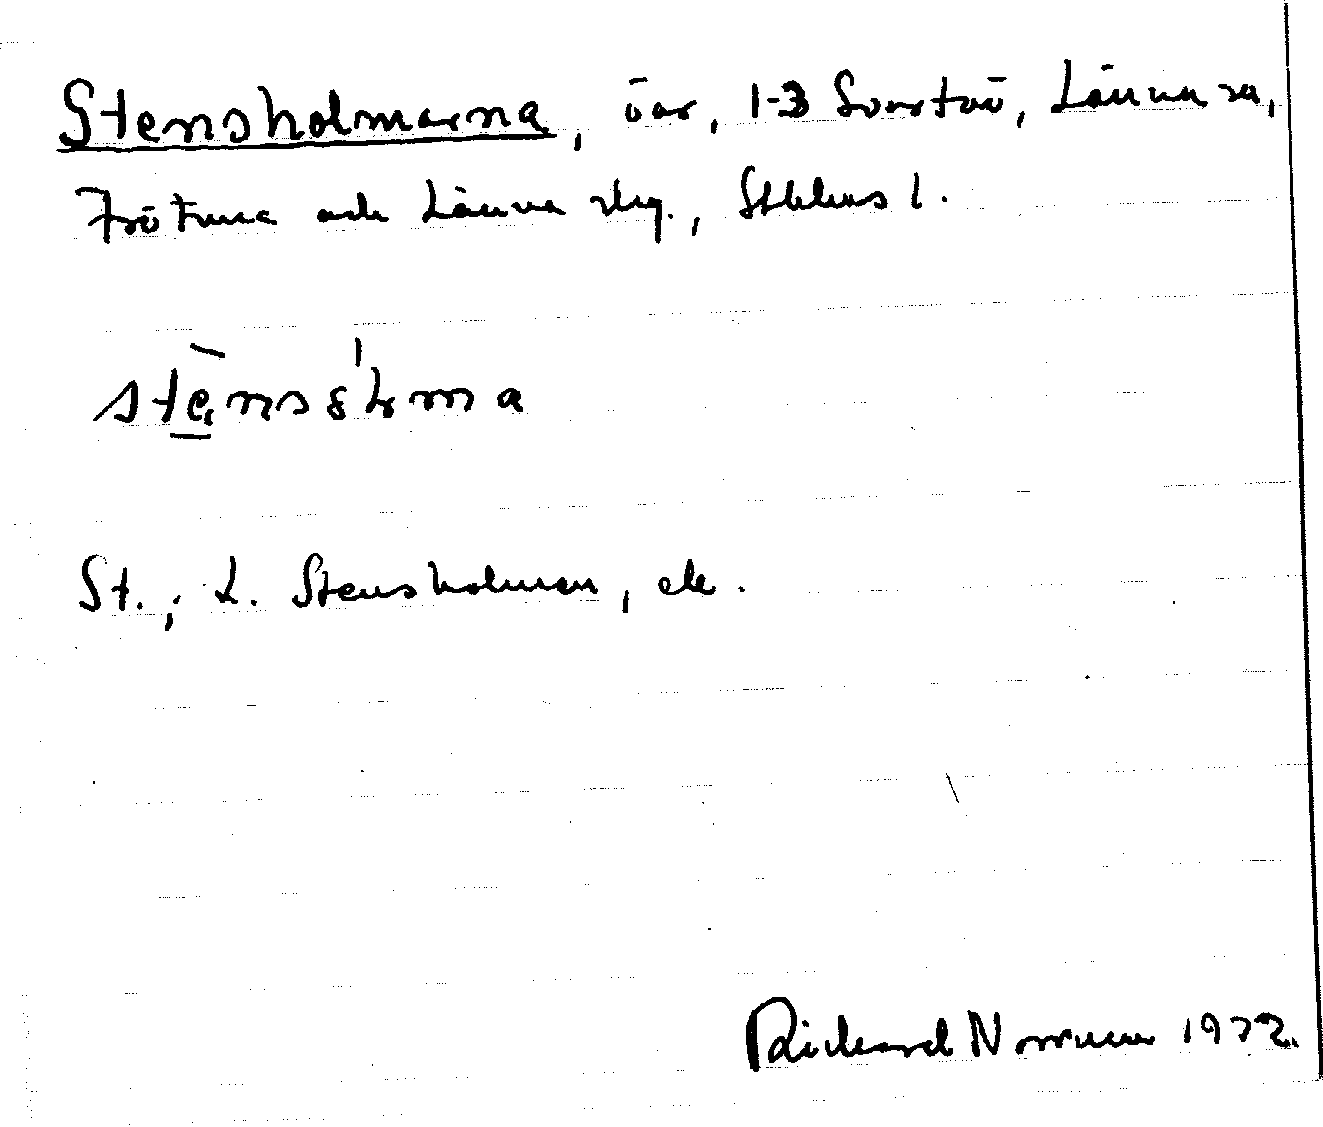 Stensholmarna, öar, 1-3 Svartnö, Länna sn,
Frötuna och Länna slg., Sthlms l.
stensholma
St., L. Stensholmen, ek.
Rickard Norman 1972.